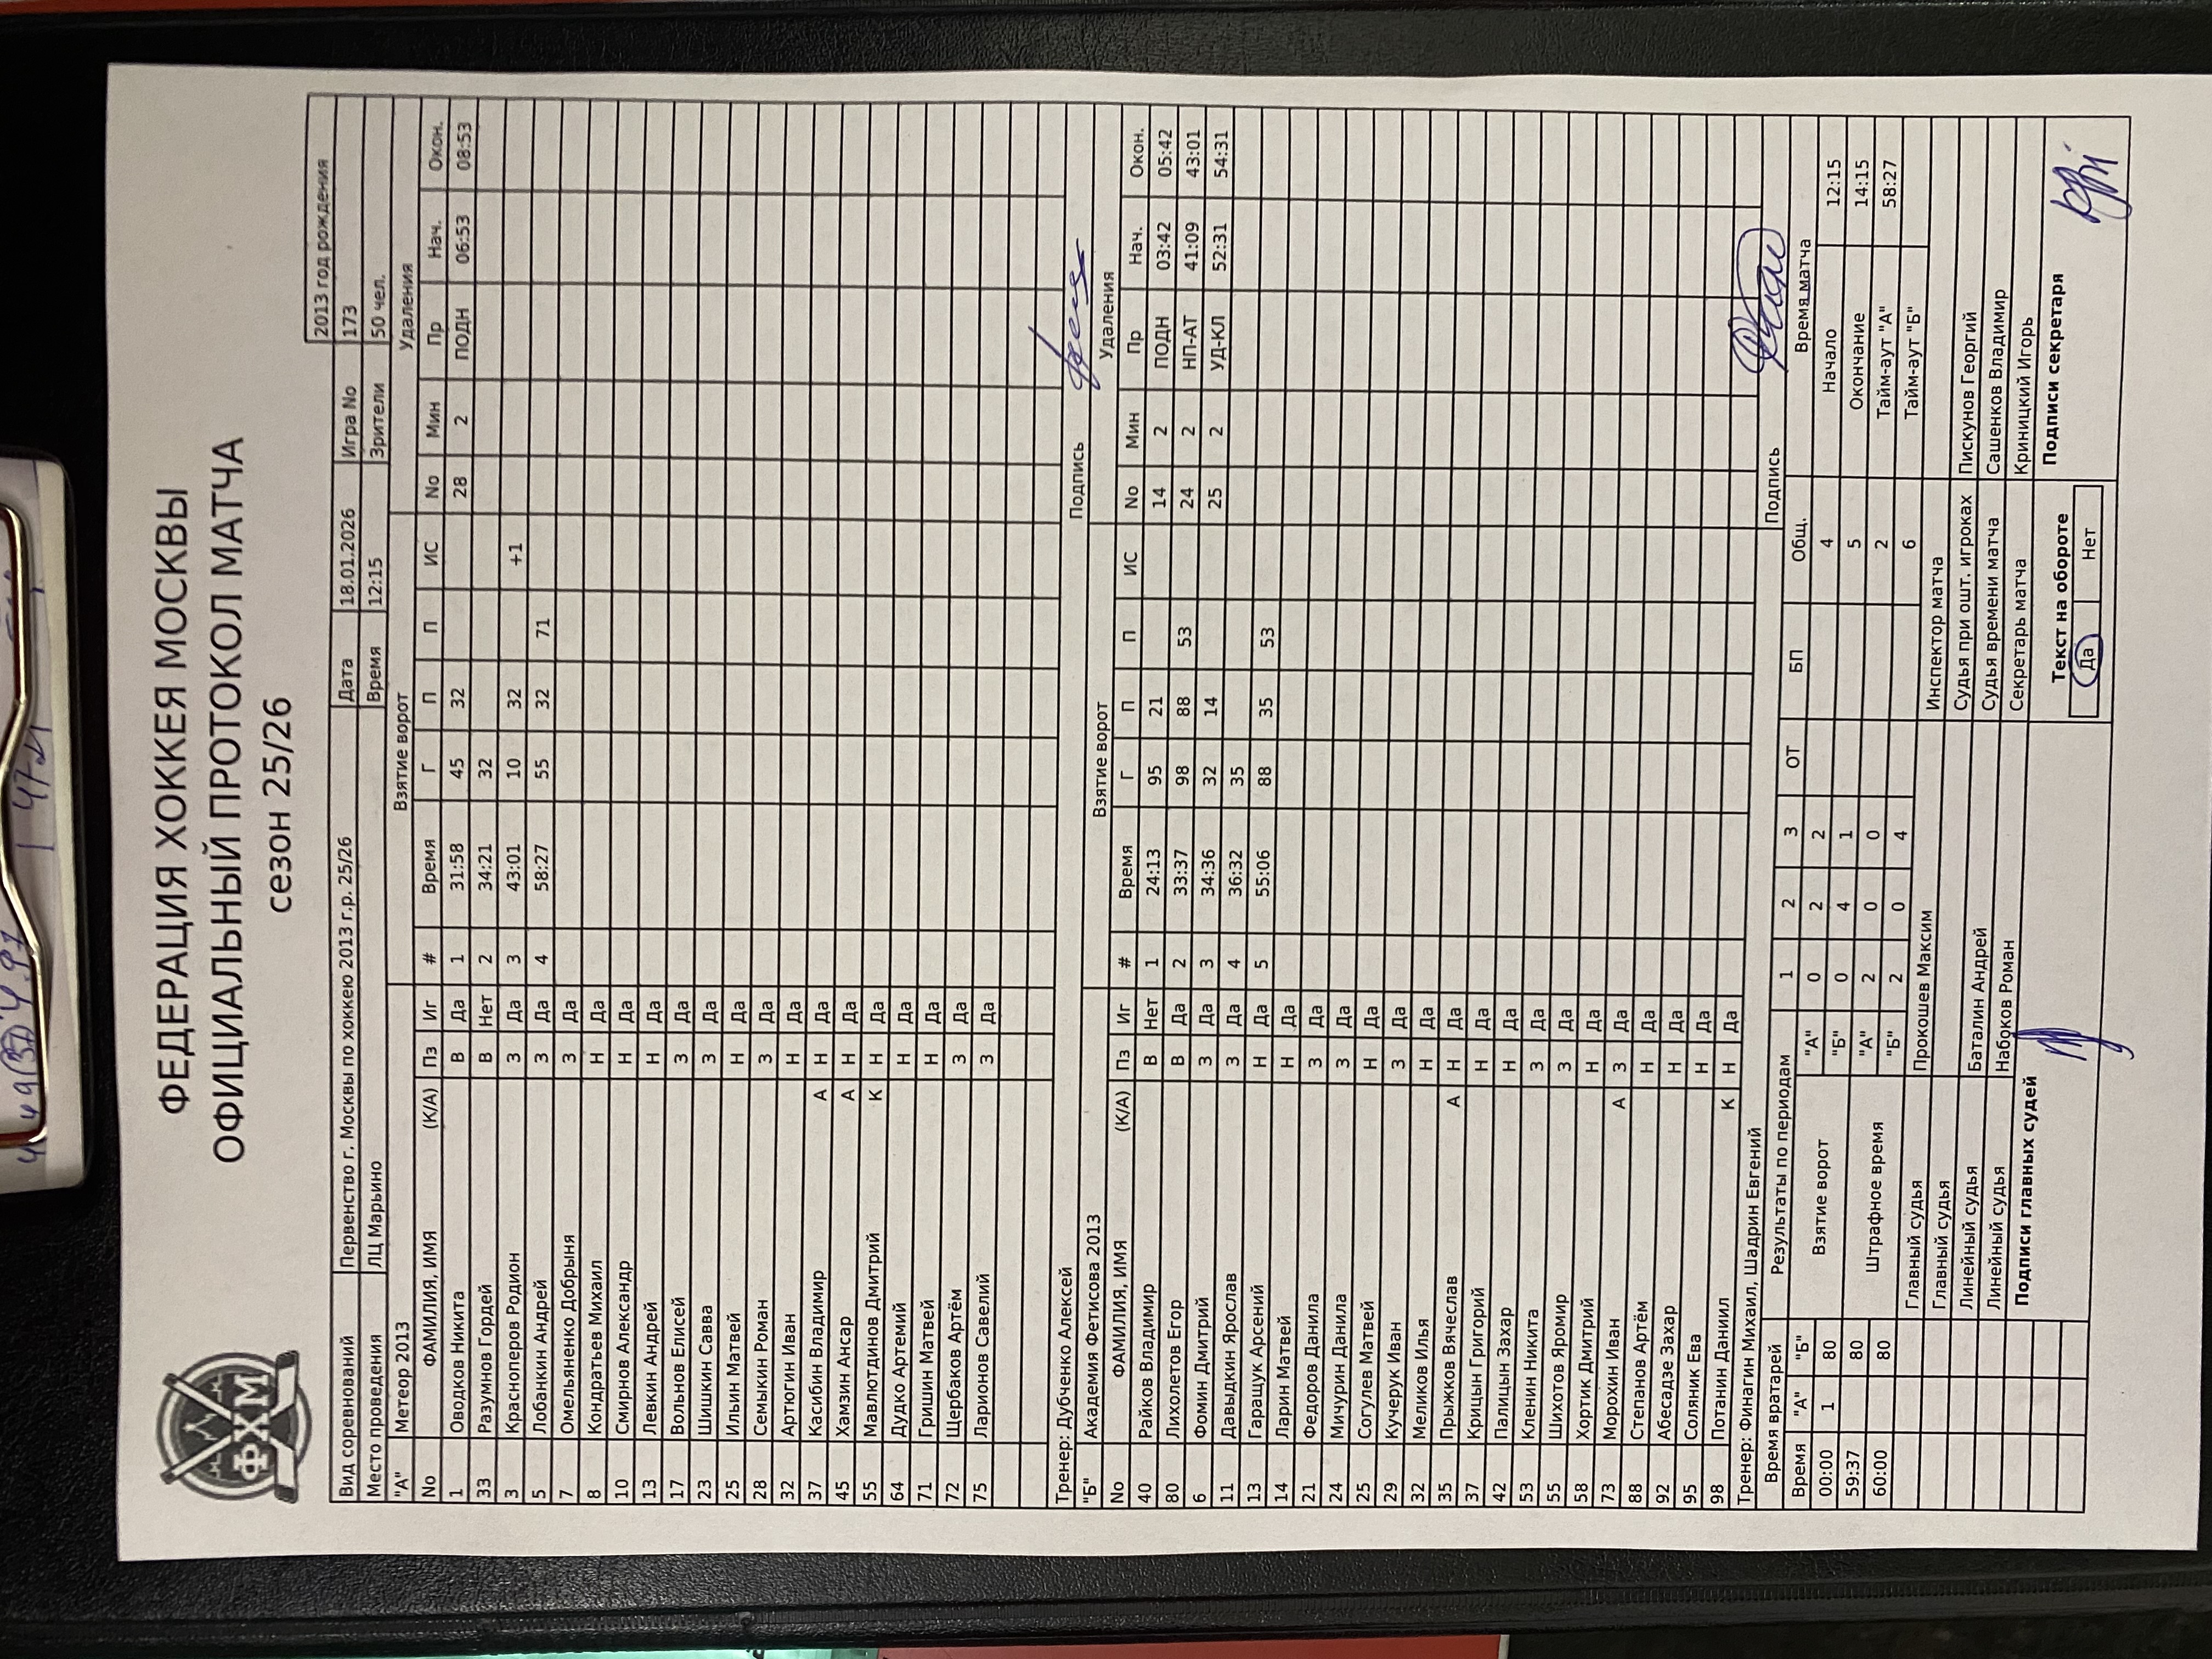 ФЕДЕРАЦИЯ ХОККЕЯ МОСКВЫ
ОФИЦИАЛЬНЫЙ ПРОТОКОЛ МАТЧА
сезон 25/26
ФХМ
2013 год рождения
Вид соревнований Первенство г. Москвы по хоккею 2013 г.р. 25/26 Дата 18.01.2026 Игра No 173
Место проведения ЛЦ Марьино Время 12:15 Зрители 50 чел.
"А" Метеор 2013 Взятие ворот Удаления
No ФАМИЛИЯ, ИМЯ (К/А) Пз Иг # Время Г П П ИС No Мин Пр Нач. Окон.
1 Оводков Никита В Да 1 31:58 45 32 28 2 ПОДН 06:53 08:53
33 Разумнов Гордей В Нет 2 34:21 32
3 Красноперов Родион З Да 3 43:01 10 32 +1
5 Лобанкин Андрей З Да 4 58:27 55 32 71
7 Омельяненко Добрыня З Да
8 Кондратьев Михаил Н Да
10 Смирнов Александр Н Да
13 Левкин Андрей Н Да
17 Вольнов Елисей З Да
23 Шишкин Савва З Да
25 Ильин Матвей Н Да
28 Семыкин Роман З Да
32 Артюгин Иван Н Да
37 Касибин Владимир А Н Да
45 Хамзин Ансар А Н Да
55 Мавлютдинов Дмитрий К Н Да
64 Дудко Артемий Н Да
71 Гришин Матвей Н Да
72 Щербаков Артём З Да
75 Ларионов Савелий З Да
Тренер: Дубченко Алексей Подпись
"Б" Академия Фетисова 2013 Взятие ворот Удаления
No ФАМИЛИЯ, ИМЯ (К/А) Пз Иг # Время Г П П ИС No Мин Пр Нач. Окон.
40 Райков Владимир В Нет 1 24:13 95 21 14 2 ПОДН 03:42 05:42
80 Лихолетов Егор В Да 2 33:37 98 88 53 24 2 НП-АТ 41:09 43:01
6 Фомин Дмитрий З Да 3 34:36 32 14 25 2 УД-КЛ 52:31 54:31
11 Давыдкин Ярослав З Да 4 36:32 35
13 Гаращук Арсений Н Да 5 55:06 88 35 53
14 Ларин Матвей Н Да
21 Федоров Данила З Да
24 Мичурин Данила З Да
25 Согулев Матвей Н Да
29 Кучерук Иван З Да
32 Меликов Илья Н Да
35 Прыжков Вячеслав А Н Да
37 Крицын Григорий Н Да
42 Палицын Захар Н Да
53 Кленин Никита З Да
55 Шихотов Яромир З Да
58 Хортик Дмитрий Н Да
73 Морохин Иван А З Да
88 Степанов Артём Н Да
92 Абесадзе Захар Н Да
95 Соляник Ева Н Да
98 Потанин Даниил К Н Да
Тренер: Финагин Михаил, Шадрин Евгений Подпись
Время вратарей Результаты по периодам 1 2 3 ОТ БП Общ. Время матча
Время "А" "Б" Взятие ворот "А" 0 2 2 4 Начало 12:15
00:00 1 80 "Б" 0 4 1 5 Окончание 14:15
59:37 80 Штрафное время "А" 2 0 0 2 Тайм-аут "А" 58:27
60:00 80 "Б" 2 0 4 6 Тайм-аут "Б"
Главный судья Прокошев Максим Инспектор матча
Главный судья Судья при ошт. игроках Пискунов Георгий
Линейный судья Баталин Андрей Судья времени матча Сашенков Владимир
Линейный судья Набоков Роман Секретарь матча Криницкий Игорь
Подписи главных судей Текст на обороте Подписи секретаря
Да Нет